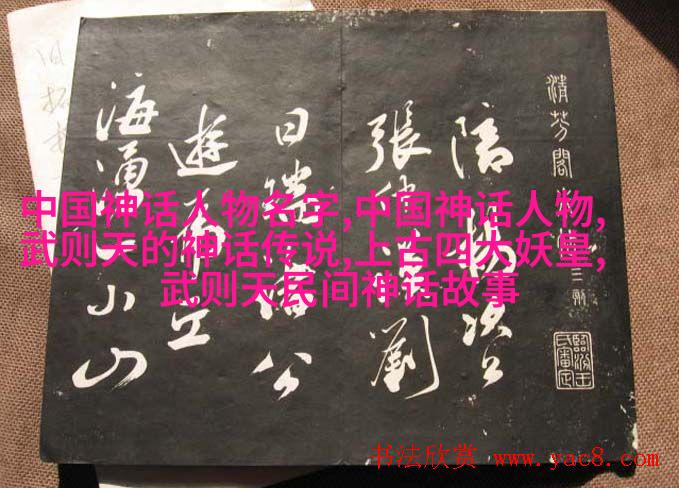 中国神话人物名字,中国神话人物,
武则天的神话传说,上古四大妖皇,
武则天民间神话故事
清芳閣
陪楊次公
張 劉
公
遊 丘
海涌 小山
书法欣赏 www.yac8.com